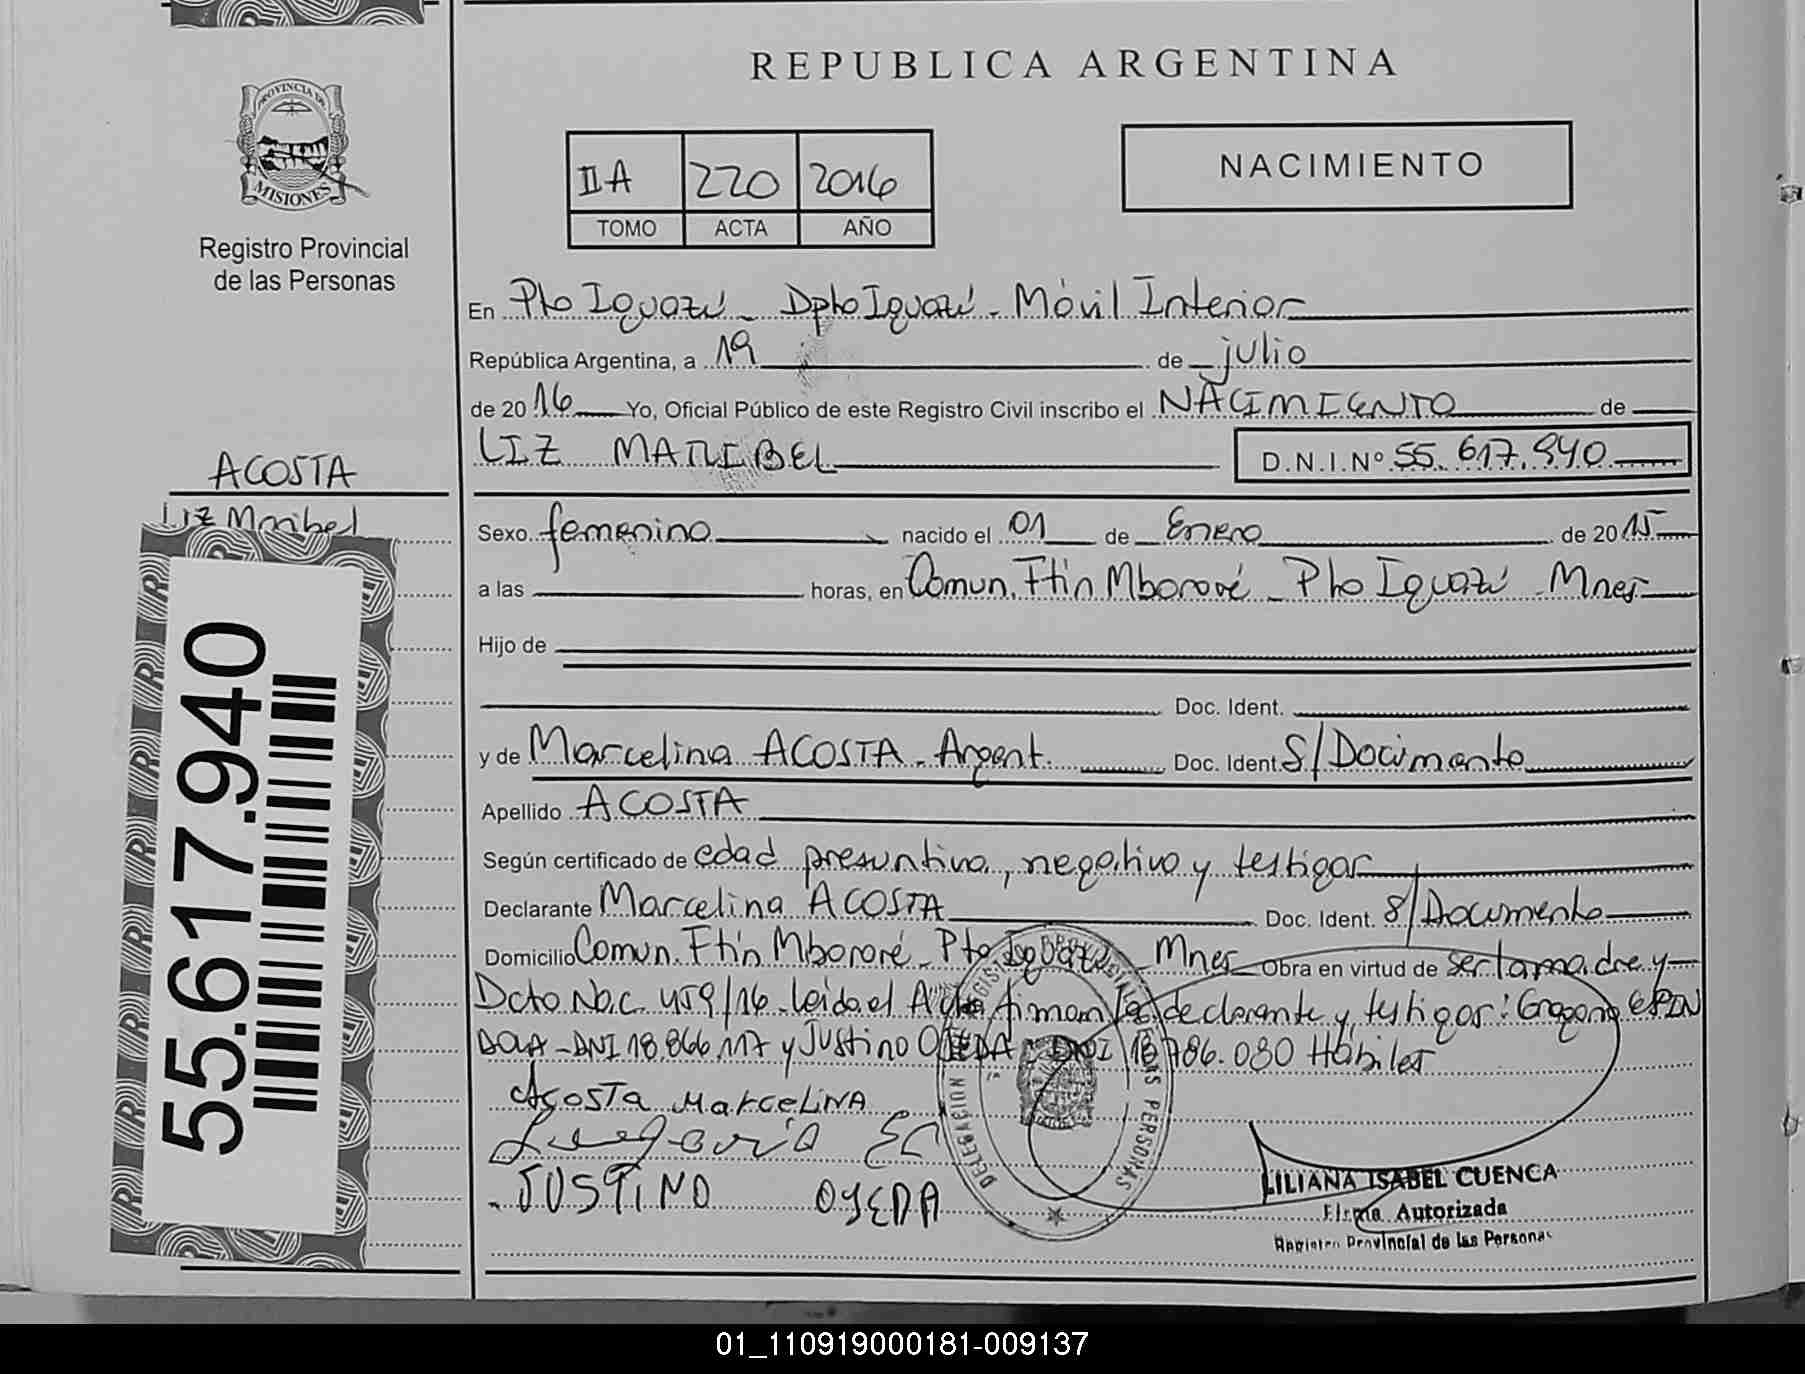 REPUBLICA ARGENTINA
PROVINCIA DE
MISIONES
Registro Provincial
de las Personas
IIA 220 2016
TOMO ACTA AÑO
NACIMIENTO
En Pto Iguazú - Dpto Iguazú - Móvil Interior
República Argentina, a 19 de julio
de 2016 Yo, Oficial Público de este Registro Civil inscribo el NACIMIENTO de
LIZ MARIBEL D.N.I.Nº 55.617.940
ACOSTA
Liz Maribel
55.617.940
Sexo femenino nacido el 01 de Enero de 2015
a las horas, en Comun. Ftín Mbororé - Pto Iguazú - Mnes
Hijo de
Doc. Ident.
y de Marcelina ACOSTA - Argent. Doc. Ident S/Documento
Apellido ACOSTA
Según certificado de edad presuntiva, negativo y testigos
Declarante Marcelina ACOSTA Doc. Ident. S/Documento
Domicilio Comun. Ftín Mbororé - Pto Iguazú - Mnes Obra en virtud de ser la madre y
Dcto Nac. 459/16 - Leida el Acta firman la declarante y testigos: ESPIN
DOLA - DNI 18.866.117 y Justino OJEDA - DNI 18.786.080 Hábiles
Acosta Marcelina
JUSTINO OJEDA
DELEGACION REGISTRO PROVINCIAL DE LAS PERSONAS
LILIANA ISABEL CUENCA
Firma Autorizada
Registro Provincial de las Personas
01_110919000181-009137